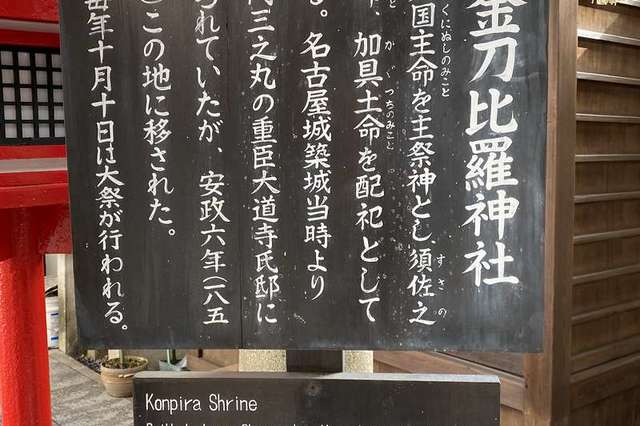 金刀比羅神社
国主命を主祭神とし、須佐之
くにぬしのみこと
すさの
、加具土命を配祀として
かぐつちのみこと
る。名古屋城築城当時より
三之丸の重臣大道寺氏邸に
られていたが、安政六年（一八五
この地に移された。
毎年十月十日は大祭が行われる。
Konpira Shrine